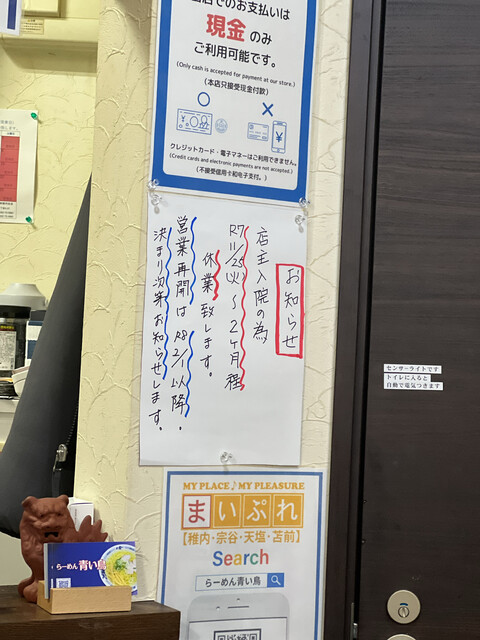 当店でのお支払いは
現金 のみ
ご利用可能です。
(Only cash is accepted for payment at our store.)
(本店只接受现金付款)
クレジットカード・電子マネーはご利用できません。
(Credit cards and electronic payments are not accepted.)
(不接受信用卡和电子支付。)
お知らせ
店主入院の為
R7 11/25(火)〜2ヶ月程
休業致します。
営業再開は R8 2/1以降、
決まり次第お知らせします。
センサーライトです
トイレに入ると
自動で電気つきます
MY PLACE♪MY PLEASURE
まいぷれ
【稚内・宗谷・天塩・苫前】
Search
らーめん青い鳥
らーめん 青い鳥